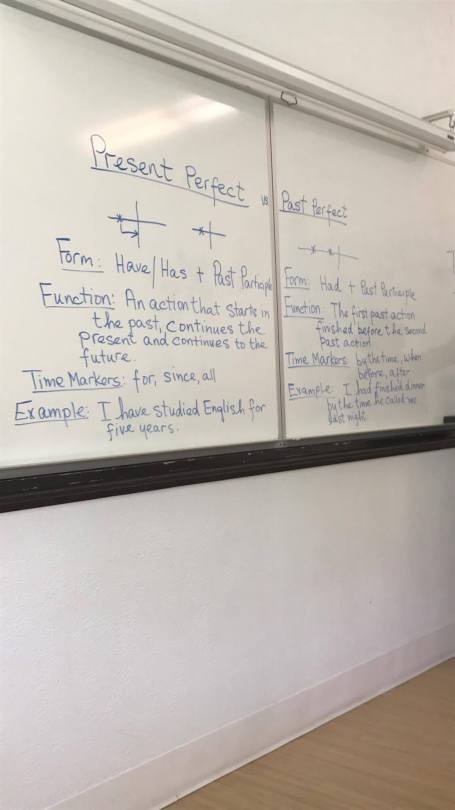 Present Perfect vs Past Perfect
Form: Have/Has + Past Participle
Function: An action that starts in
the past, continues the
present and continues to the
future.
Time Markers: for, since, all
Example: I have studied English for
five years.
Form: Had + Past Participle
Function: The first past action
finished before the second
past action
Time Markers: by the time, when
before, after
Example: I had finished dinner
by the time he called me
last night.